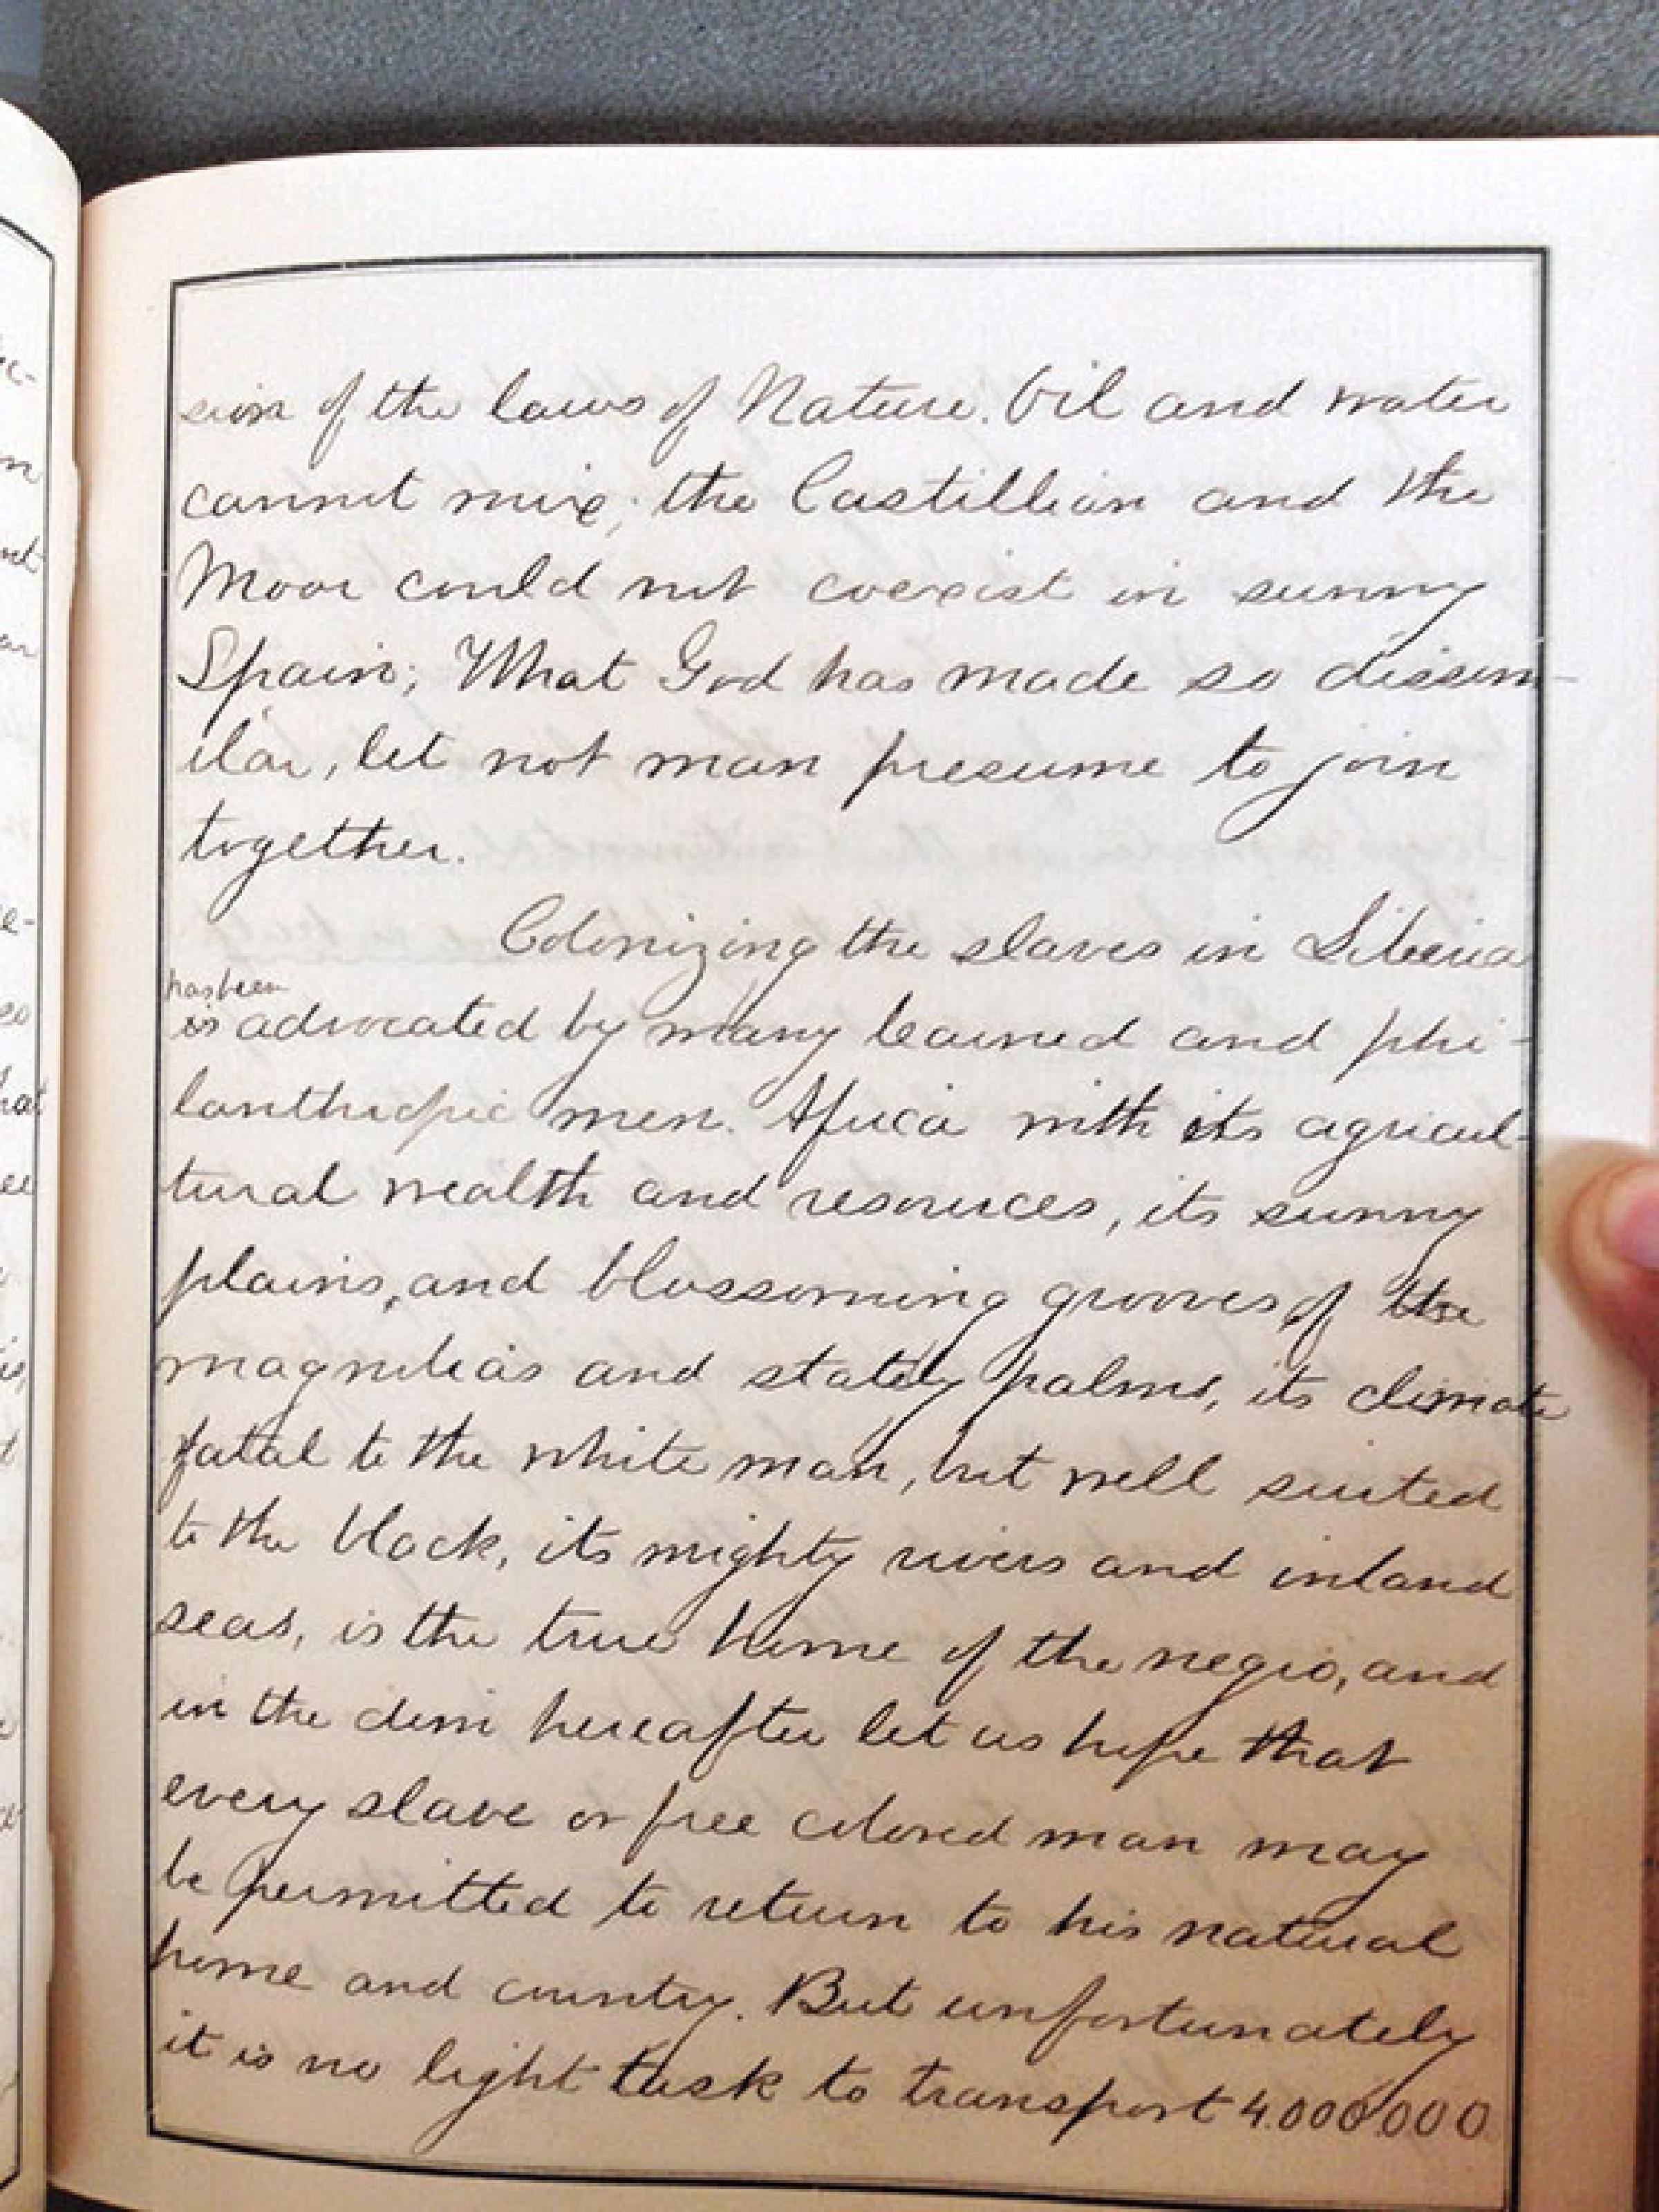 sion of the laws of Nature. Oil and water
cannot mix; the Castillian and the
Moor could not coexist in sunny
Spain; What God has made so dissim-
ilar, let not man presume to join
together.
Colonizing the slaves in Liberia
has been
is advocated by many learned and phi-
lanthropic men. Africa with its agricul-
tural wealth and resources, its sunny
plains, and blossoming grooves of the
magnolias and stately palms, its climate
fatal to the white man, but well suited
to the black, its mighty rivers and inland
seas, is the true home of the negro, and
in the dim hereafter let us hope that
every slave or free colored man may
be permitted to return to his natural
home and country. But unfortunately
it is no light task to transport 4.000.000